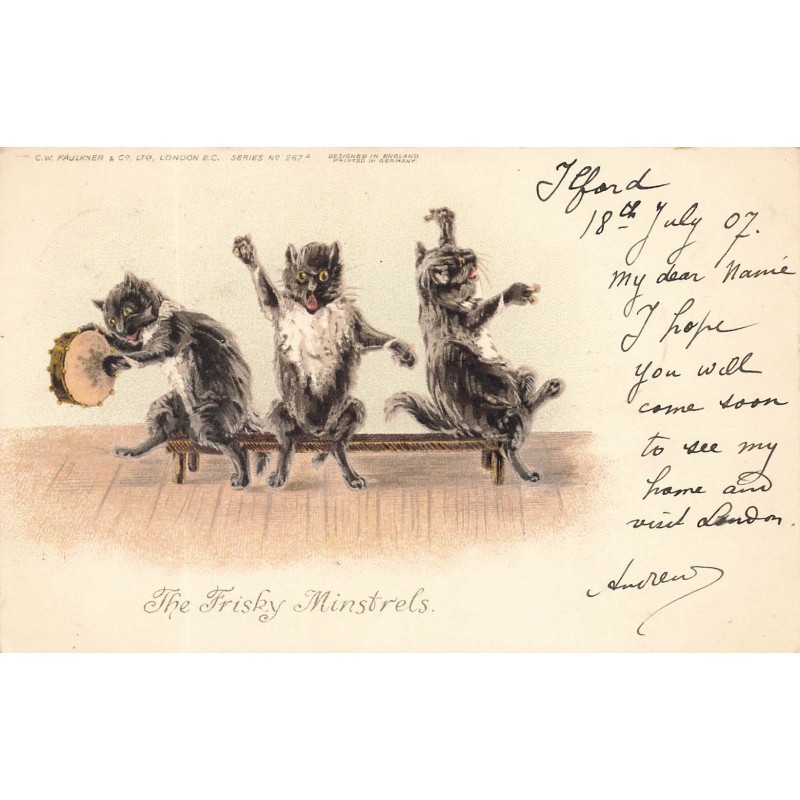 C.W. FAULKNER & CO. LTD, LONDON E.C. SERIES NO 267A
DESIGNED IN ENGLAND
PRINTED IN GERMANY
Ilford
18th July 07.
My dear Namie
I hope
you will
come soon
to see my
home and
visit London.
Andrew
The Frisky Minstrels.